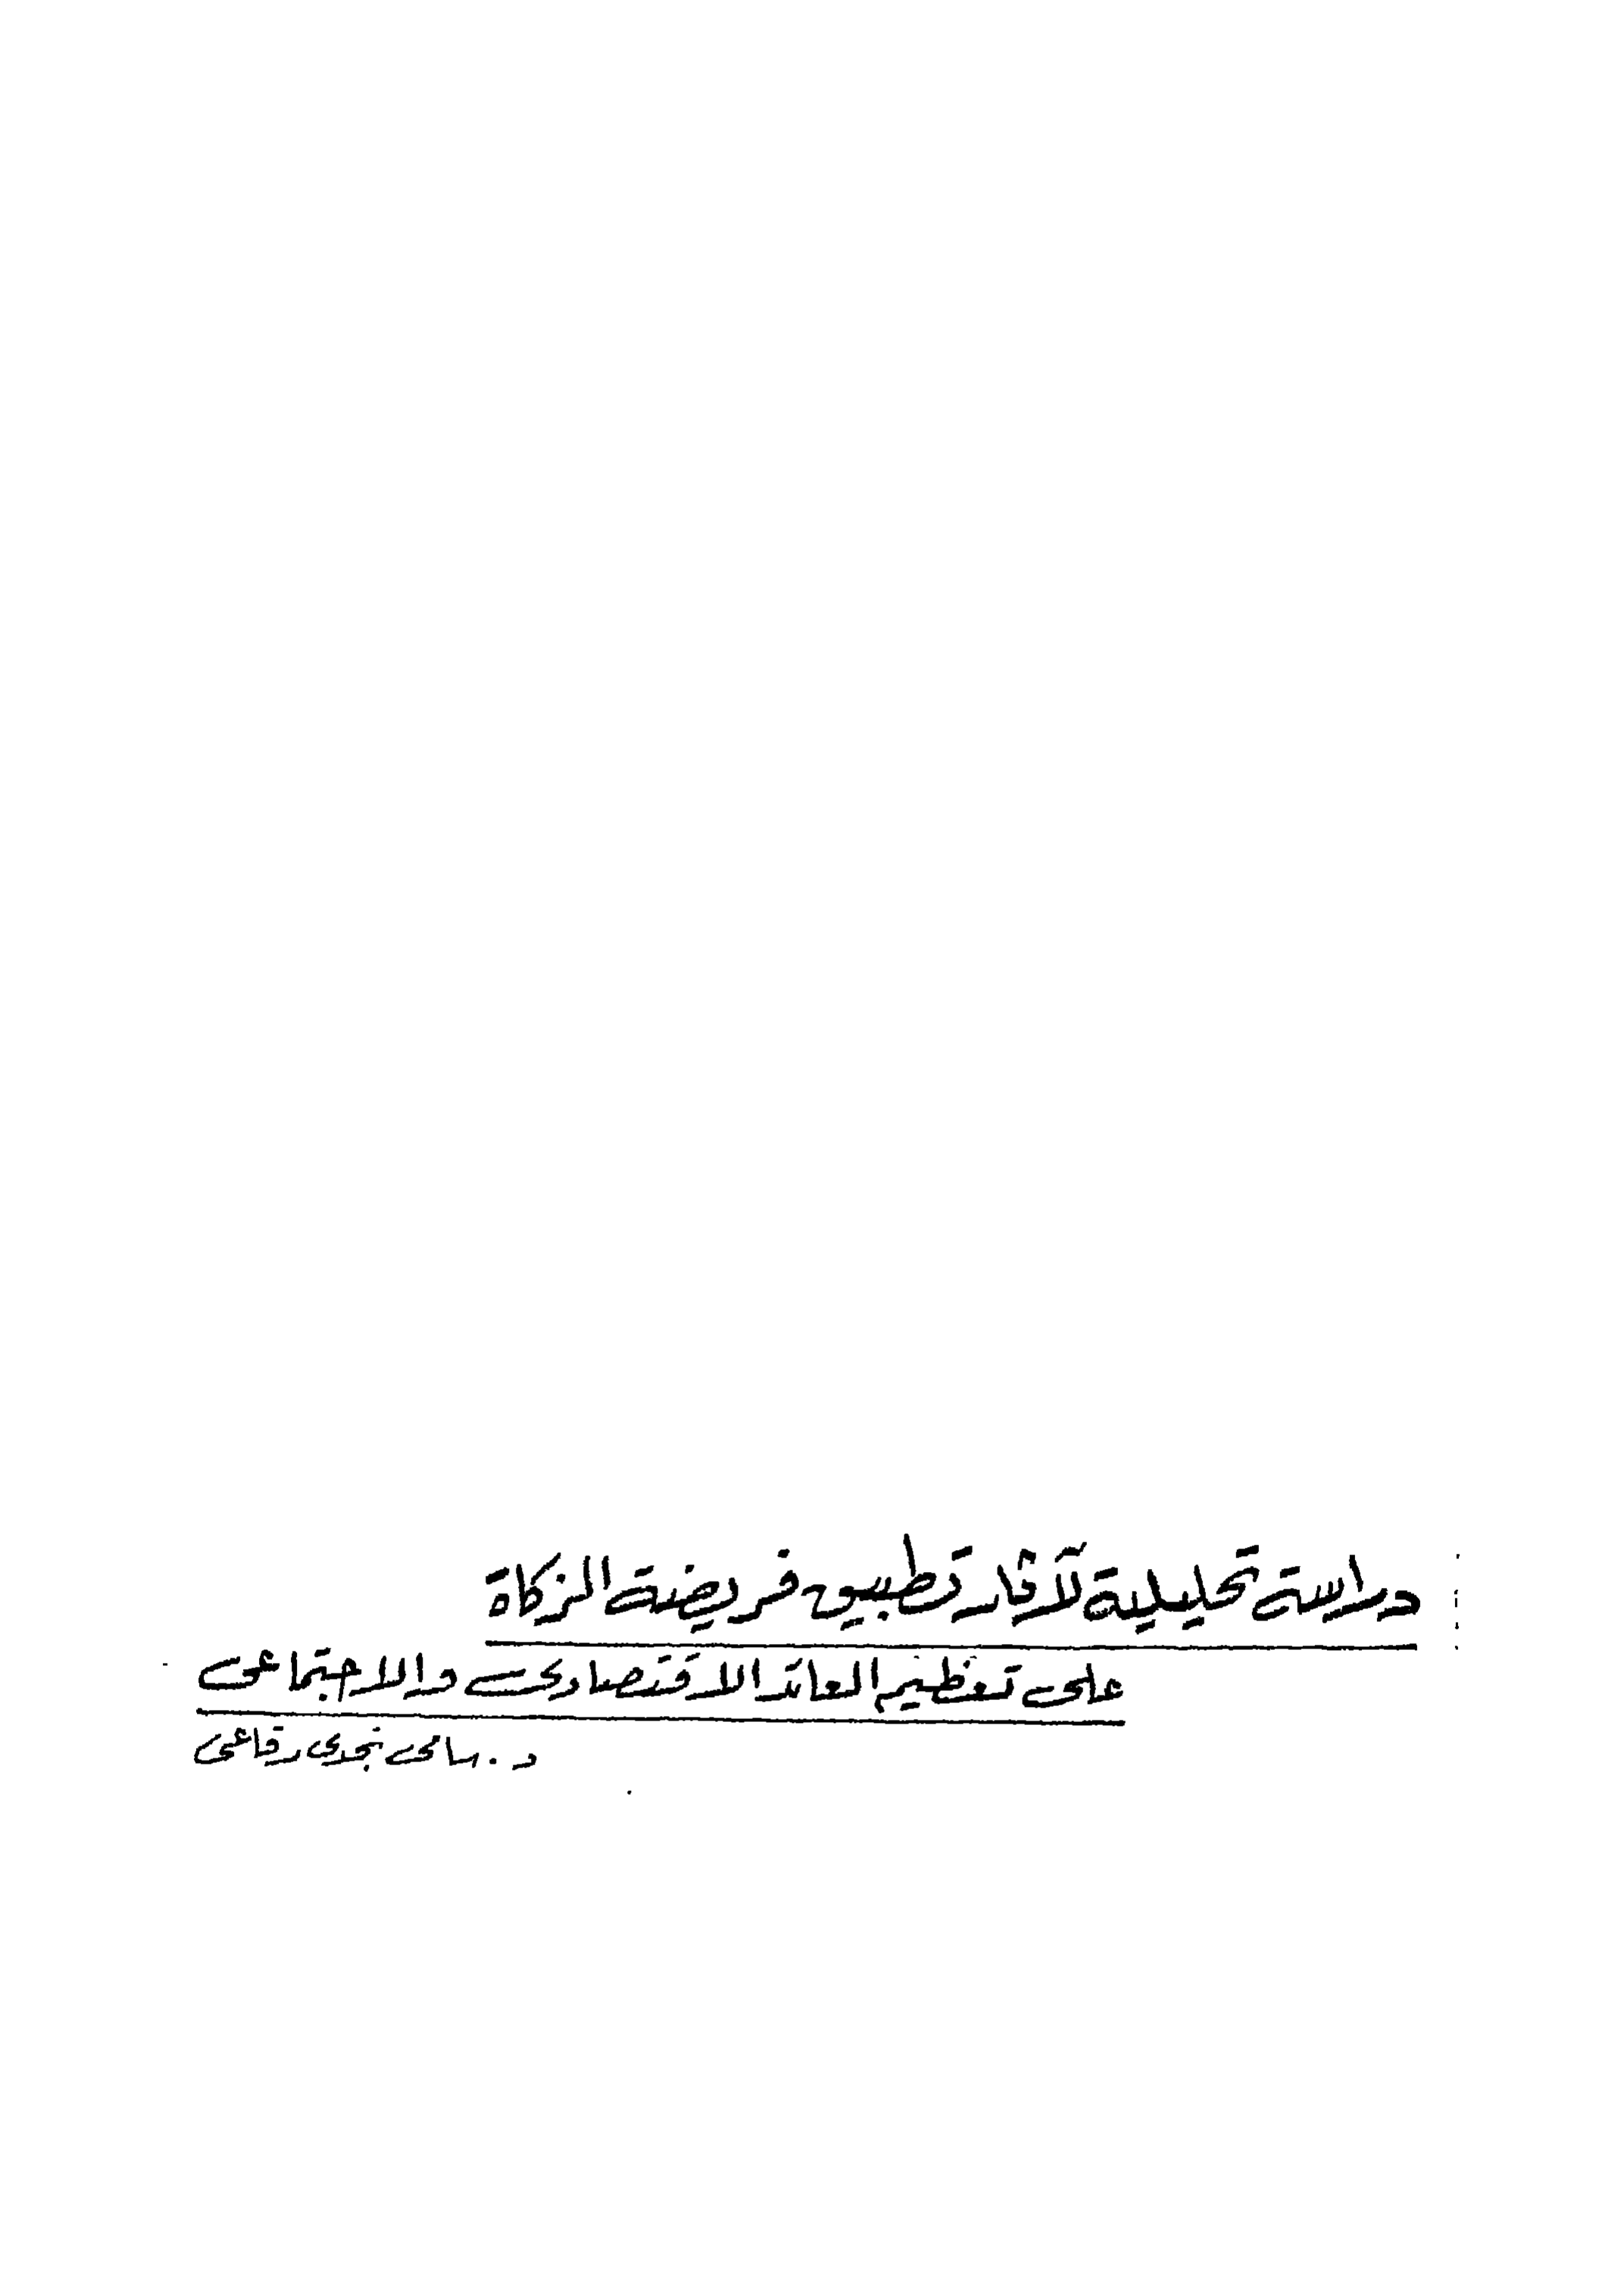 دراسة تحليلية لآثار تطبيق فريضة الزكاة
على تعظيم العائد الاقتصادى والاجتماعى
د. سامى نجدى رفاعى